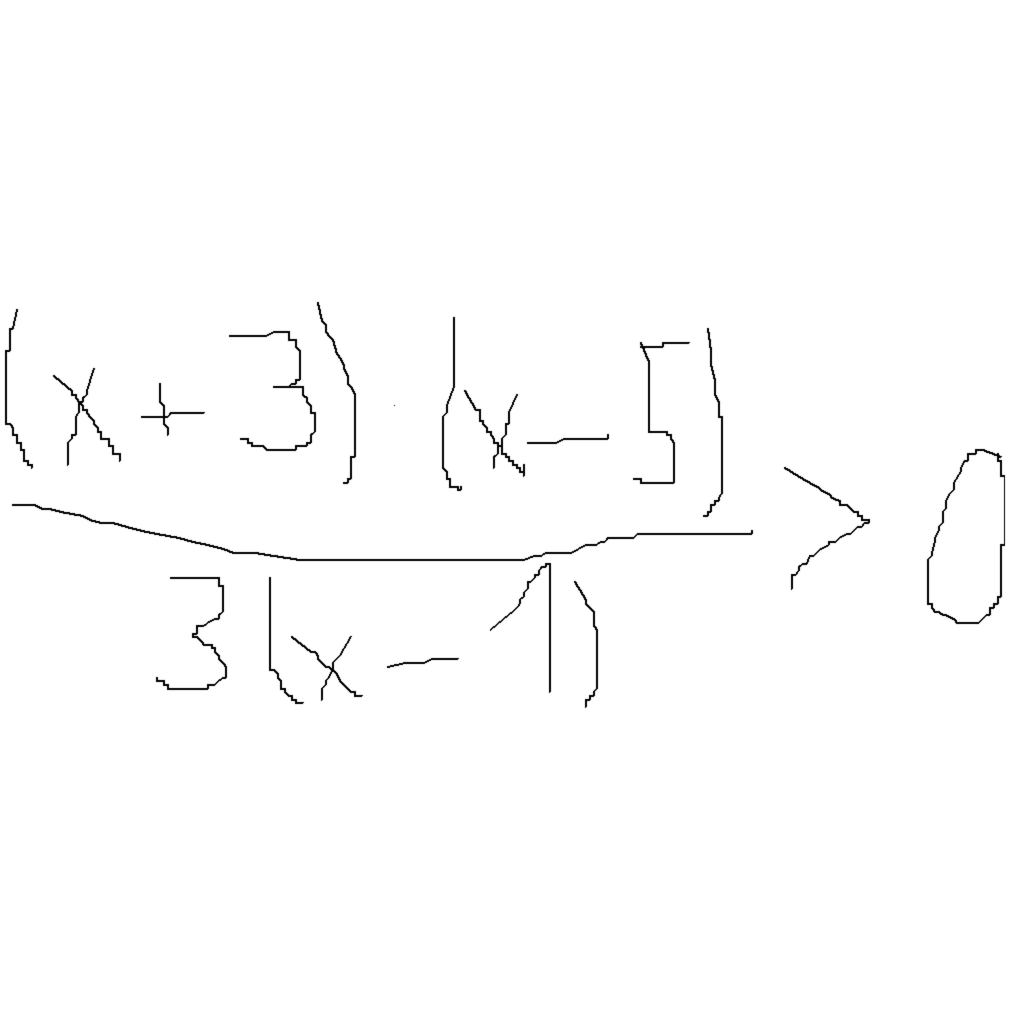 (x+3)(x-5)
3(x-1)
> 0